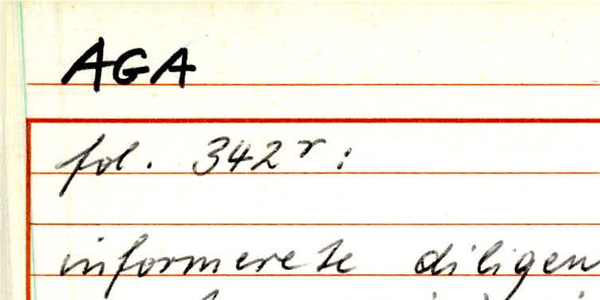 AGA
fol. 342r:
informerete diligen